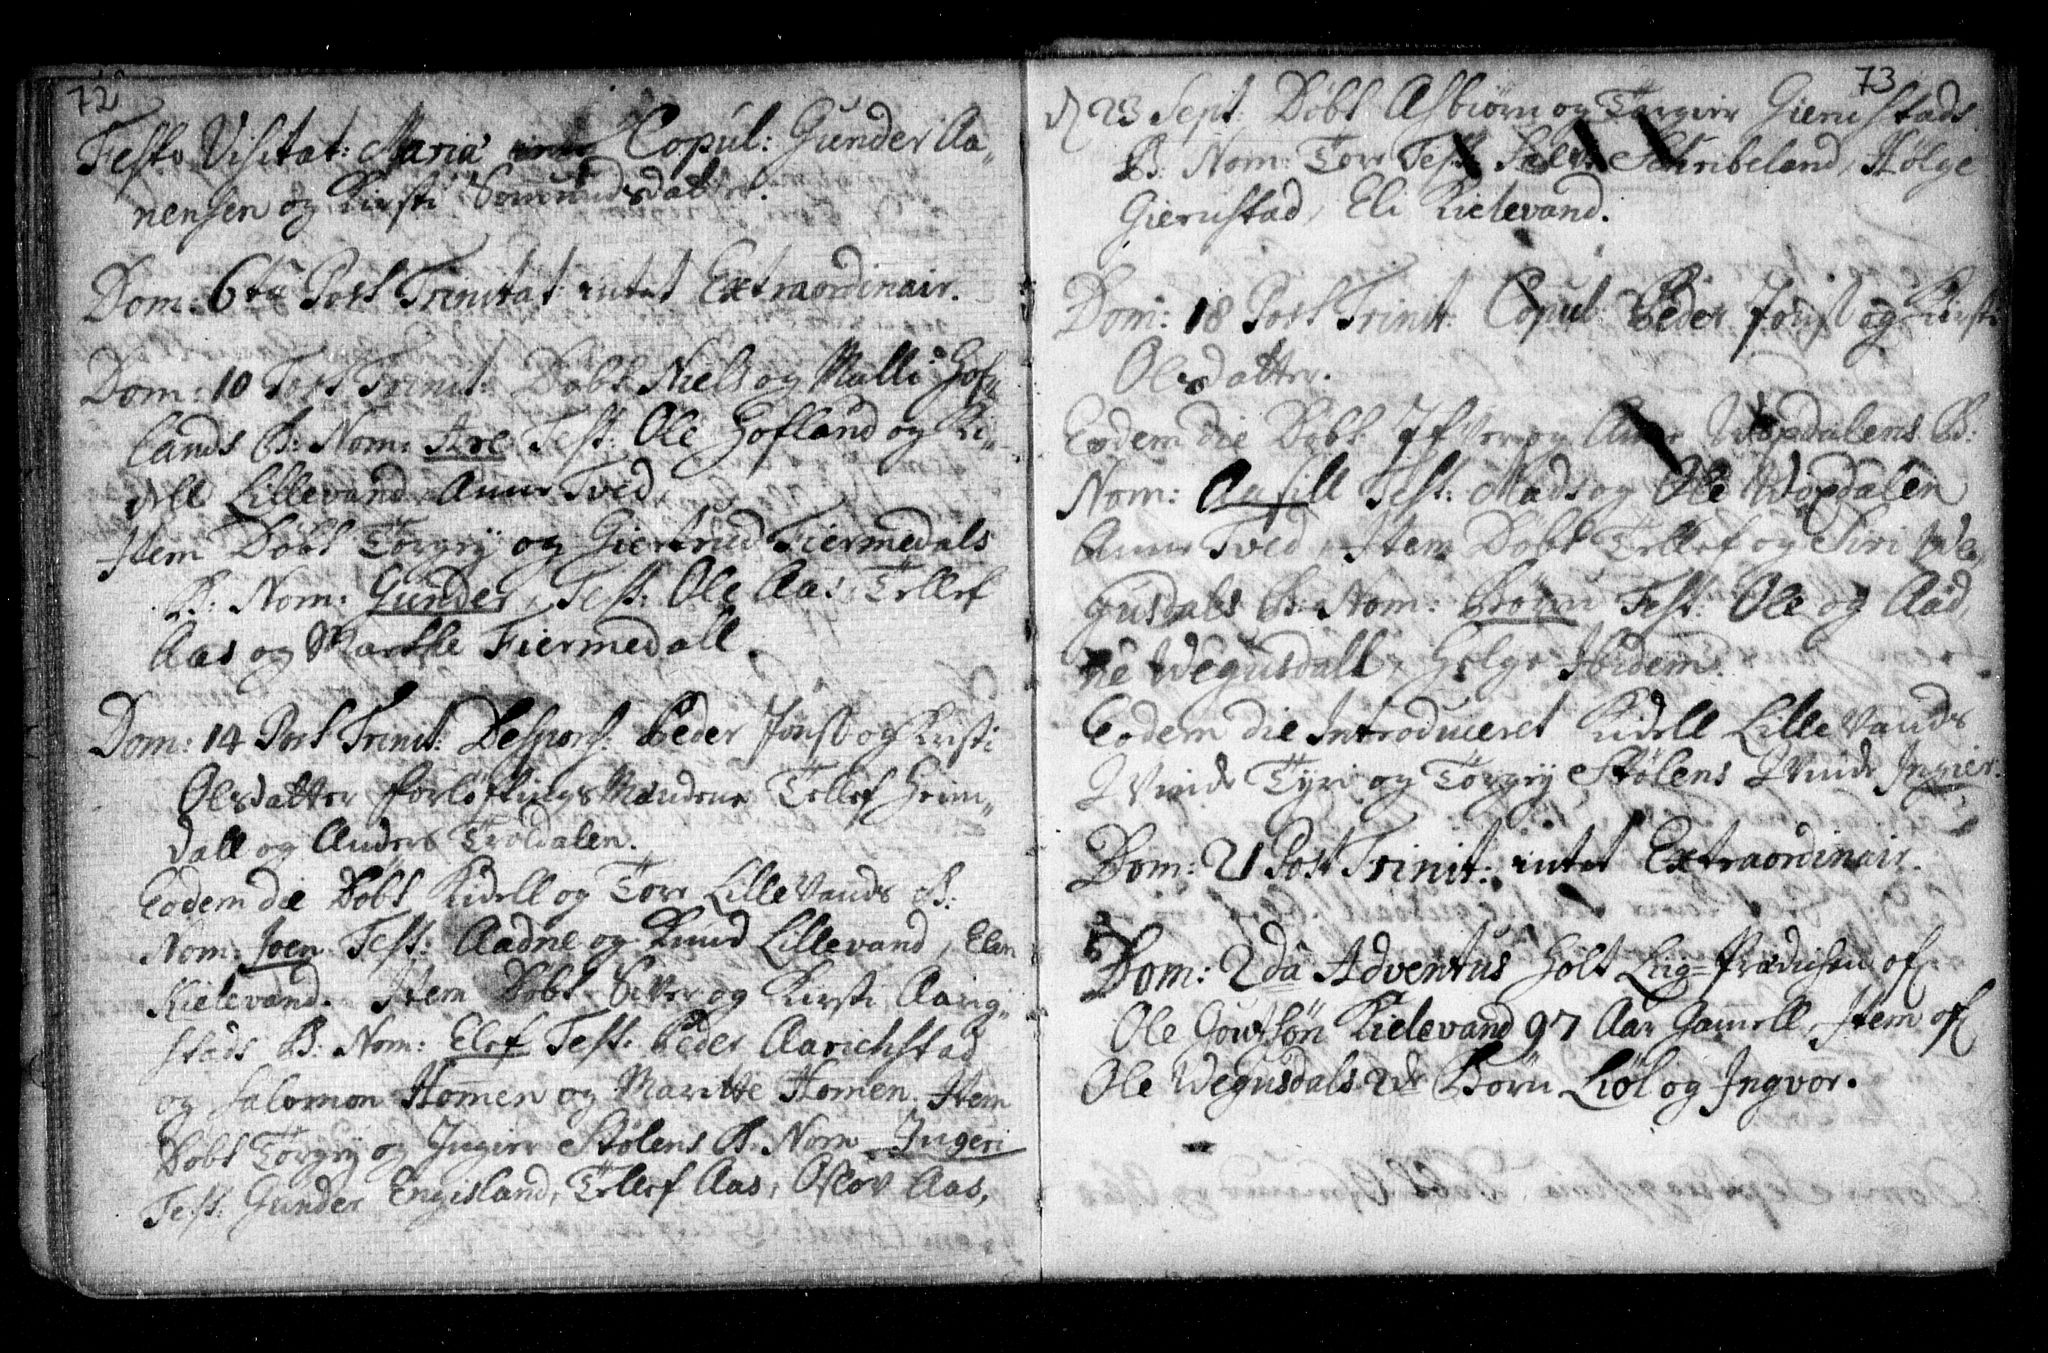 72
Festo Visitat: Maria Copul: Gunder Aa-
nensen og Kirsti Somundsdatter.
Dom: 6ta Post Trinitat: intet Extraordinair.
Dom: 10 Post Trinit: Døbt Niels og Malli Hof-
lands B: Nom: Are Test: Ole Hofland og Ki-
dell Lillevand, Anne Tved,
Item Døbt Torgiy og Giertrud Fiermedals
B: Nom: Gunder, Test: Ole Aas, Tellef
Aas og Marthe Fiermedall.
Dom: 14 Post Trinit: Despons: Peder Jonss: og Kirsti
Olsdatter forløftings Mændene Tellef Heim-
dall og Anders Troldalen.
Eodem die Døbt Kidell og Torr Lille Vands B:
Nom: Joen Test: Aadne og Knud Lillevand, Elen
Kielevand. Item Døbt Siver og Kirsti Aarig-
stads B: Nom: Elef Test: Peder Aarichstad
og Salomon Homen og Maritte Homen. Item
Døbt Torgiy og Ingier Stølens B: Nom Ingeri
Test: Gunder Engisland, Tellef Aas, Aslov Aas.
73
D 23 Sept: Døbt Asbiørn og Torgier Gierustads
B: Nom: Torr Test: Schribeland, Hølge
Gierustad, Eli Kielevand.
Dom: 18 Post Trinit: Copul: Peder Jonss: og Kirsti
Olsdatter.
Eodem die Døbt Ifver og Anne Uopdalens B:
Nom: Aasill Test: Mads og Ole Uopdalen
Anne Tved, Item Døbt Tellef og Siri We-
gusdals B: Nom: Biørn Test: Ole og Aad-
ne Wegusdall, Helge Ibidem.
Eodem die Introduceret Kidell Lille Vands
Qvinde Tyri og Torgiy Stølens Qvinde Ingier.
Dom: 21 Post Trinit: intet Extraordinair.
Dom: 2da Adventus Holt Liig-Prædichen of
Ole Goutsøn Kielevand 97 Aar Gamell, Item of
Ole Wegusdals 2de Børn Liøl og Ingvor.